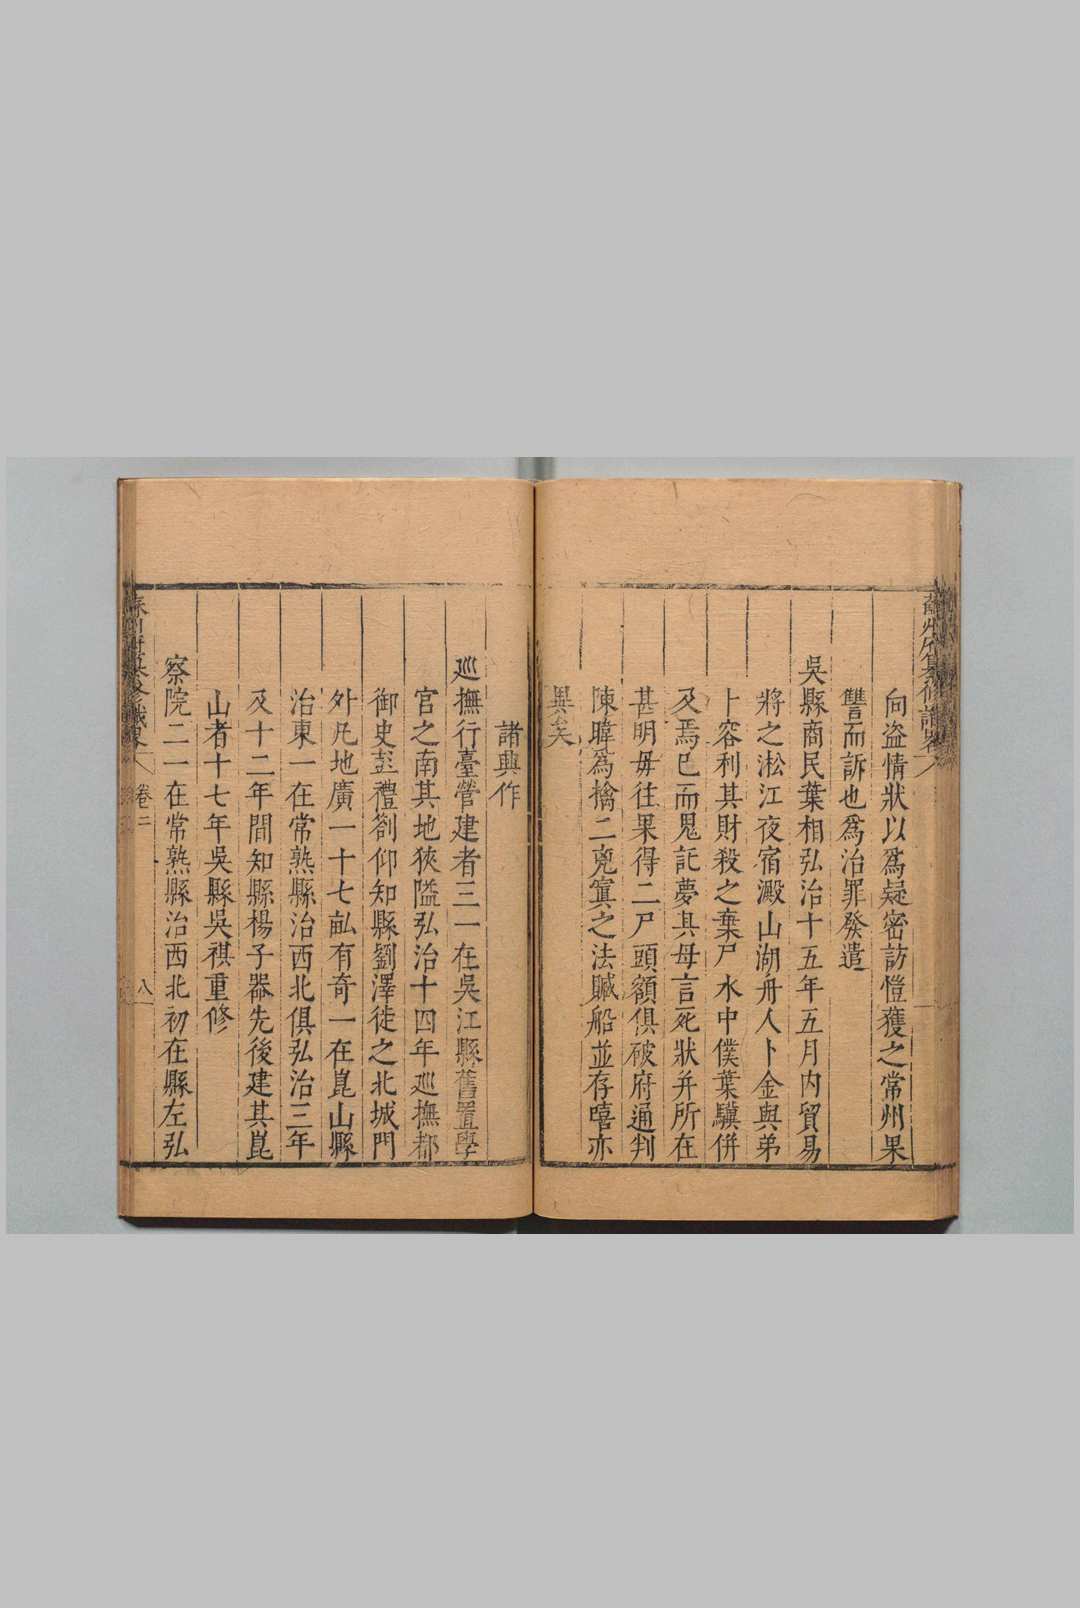 向盗情狀以爲疑密訪愷獲之常州果
讐而訴也爲治罪發遣
吳縣商民葉相弘治十五年五月内貿易
將之淞江夜宿澱山湖舟人卜金與弟
卜容利其財殺之棄尸水中僕葉驥併
及焉已而鬼託夢其母言死狀并所在
甚明毋往果得二尸頭額俱破府通判
陳暐爲擒二兇寘之法贓船並存嘻亦
異矣
諸興作
巡撫行臺營建者三一在吳江縣舊置學
宮之南其地狹隘弘治十四年巡撫都
御史彭禮劄仰知縣劉澤徒之北城門
外凡地廣一十七畝有奇一在崑山縣
治東一在常熟縣治西北俱弘治三年
及十二年間知縣楊子器先後建其崑
山者十七年吳縣吳祺重修
察院二一在常熟縣治西北初在縣左弘
卷二
八